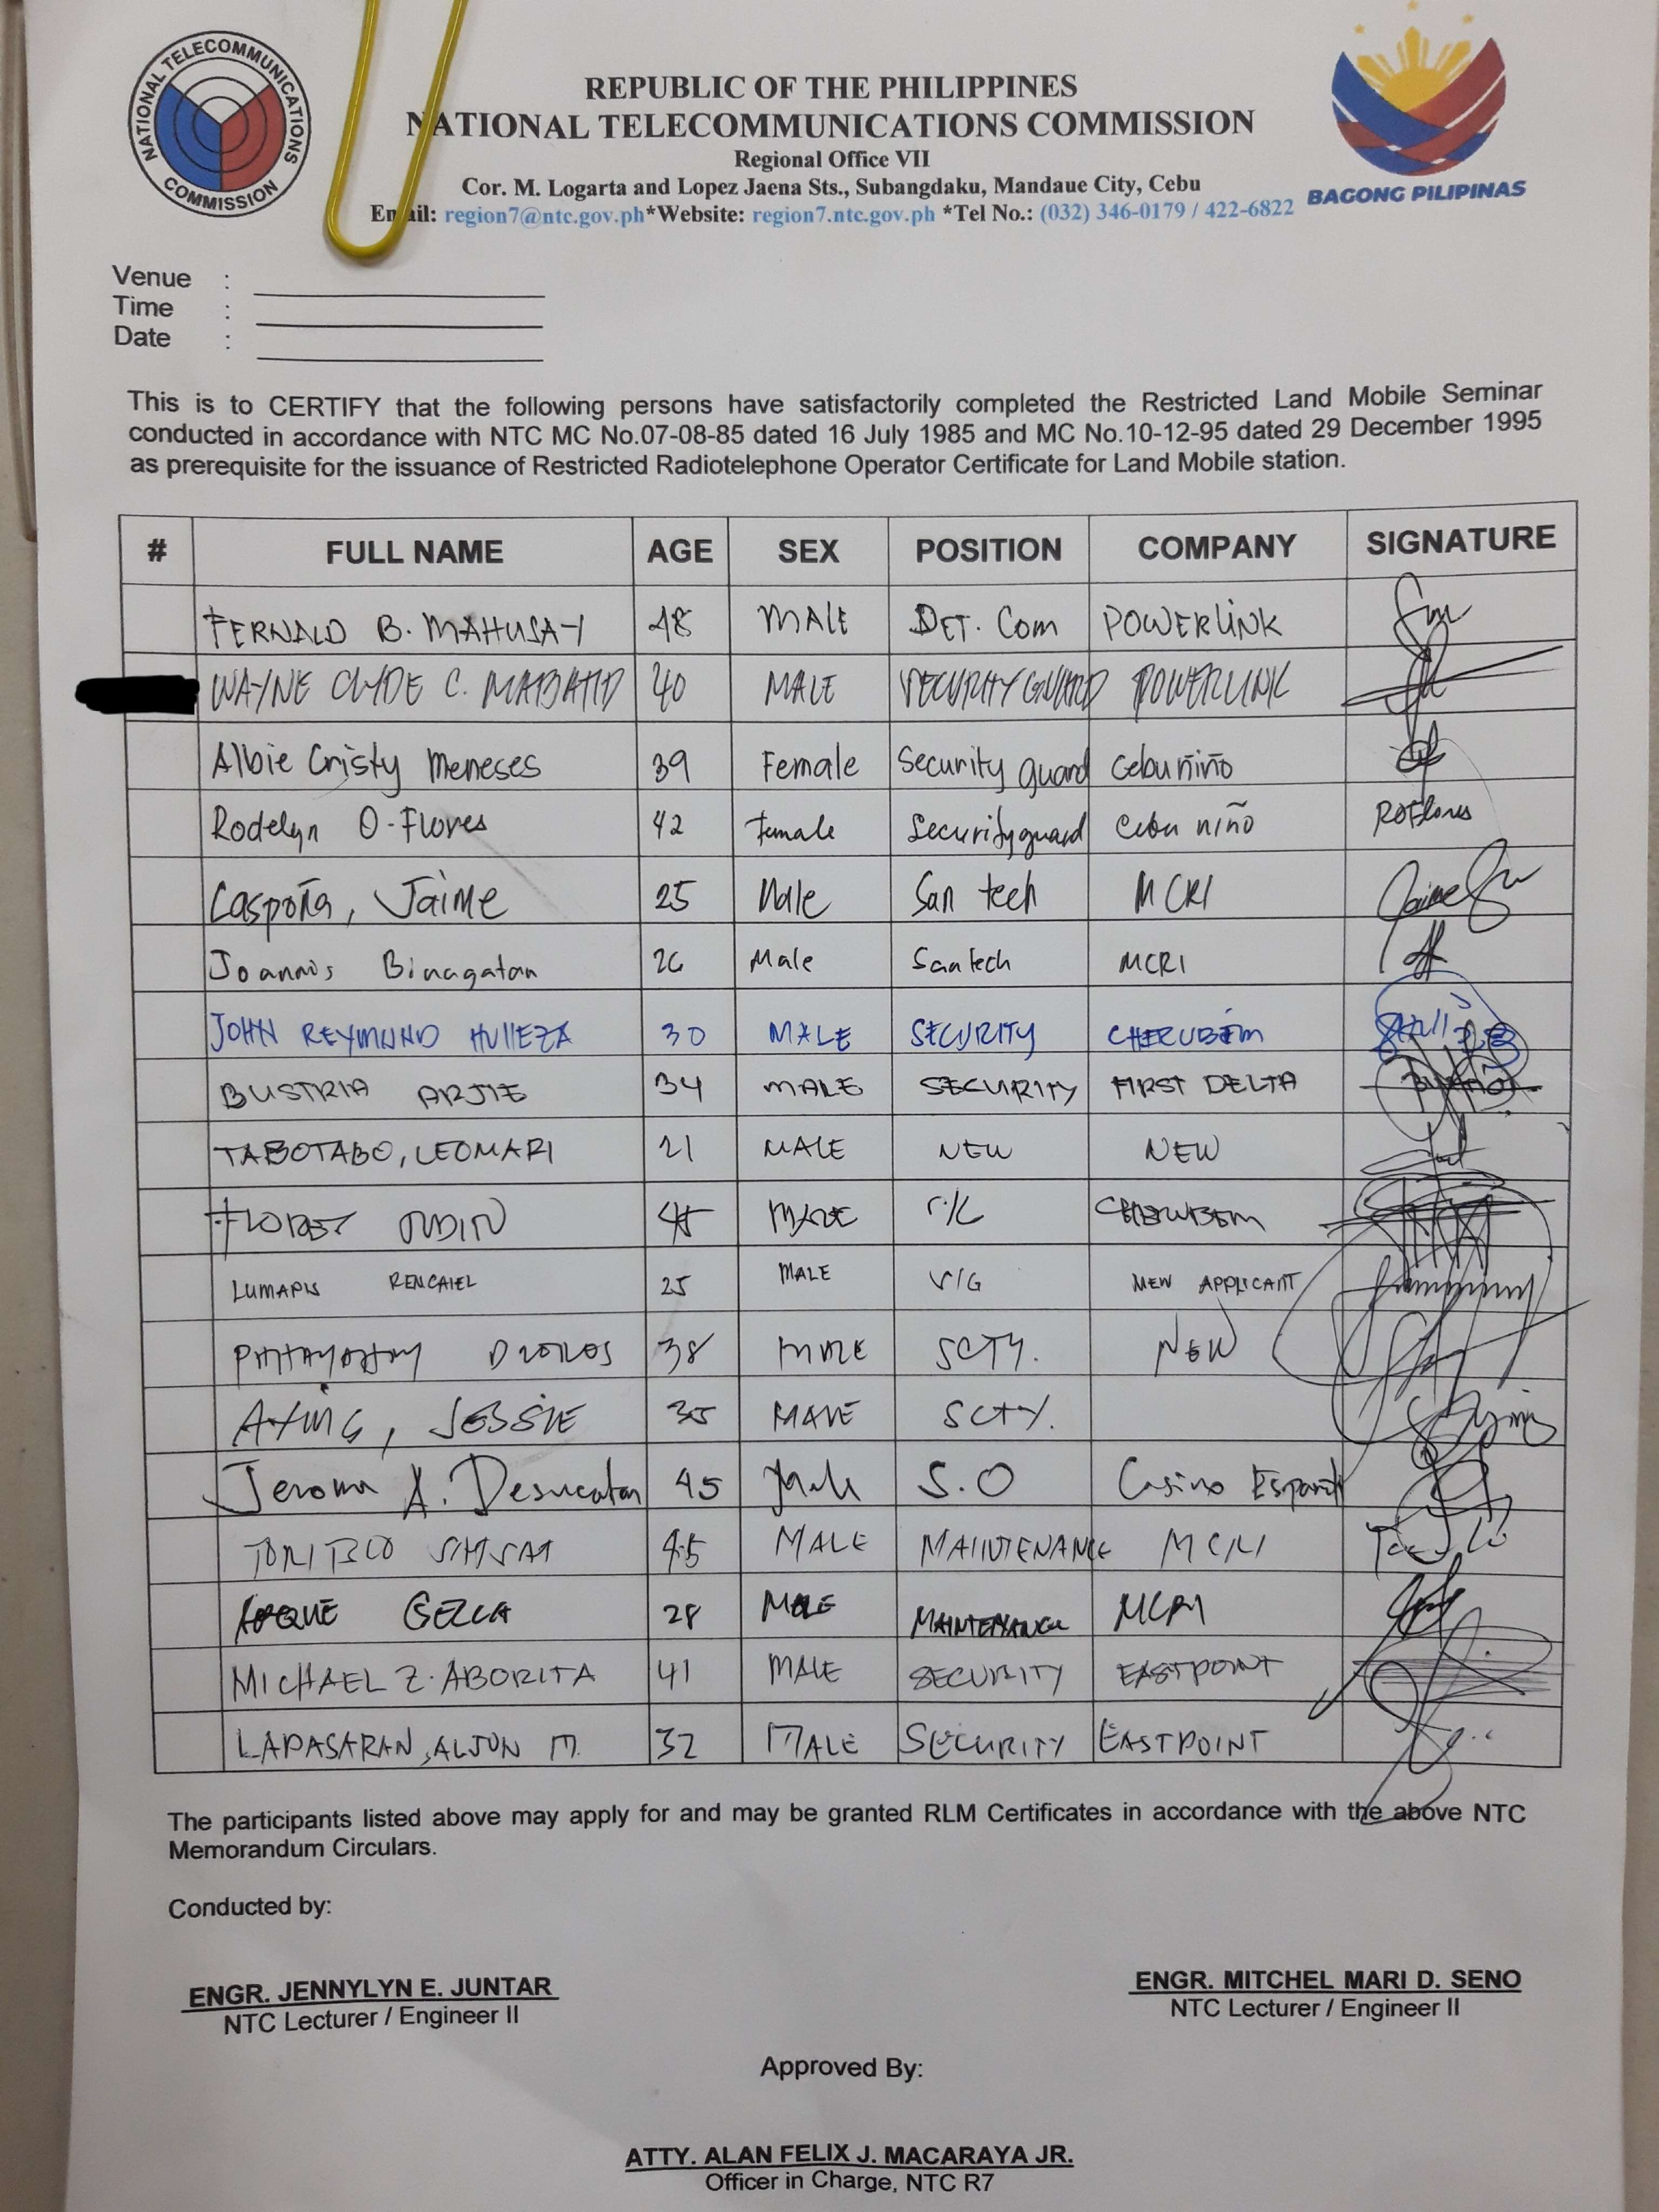 NATIONAL TELECOMMUNICATIONS COMMISSION
REPUBLIC OF THE PHILIPPINES
NATIONAL TELECOMMUNICATIONS COMMISSION
Regional Office VII
Cor. M. Logarta and Lopez Jaena Sts., Subangdaku, Mandaue City, Cebu
Email: region7@ntc.gov.ph*Website: region7.ntc.gov.ph *Tel No.: (032) 346-0179 / 422-6822
BAGONG PILIPINAS
Venue :
Time :
Date :
This is to CERTIFY that the following persons have satisfactorily completed the Restricted Land Mobile Seminar
conducted in accordance with NTC MC No.07-08-85 dated 16 July 1985 and MC No.10-12-95 dated 29 December 1995
as prerequisite for the issuance of Restricted Radiotelephone Operator Certificate for Land Mobile station.
# FULL NAME AGE SEX POSITION COMPANY SIGNATURE
FERNALD B. MAHUSAY 48 MALE DET. Com POWERLINK
WAYNE CLYDE C. MABATID 40 MALE SECURITY GUARD POWERLINK
Albie Cristy Meneses 39 Female Security guard Cebu niño
Rodelyn O. Flores 42 Female Security guard Cebu niño ROFlores
Caspoña, Jaime 25 Male San tech MCRI
Joannis Binagatan 26 Male San tech MCRI
JOHN REYMUND HULLEZA 30 MALE SECURITY CHERUBIM
BUSTRIA ARJIE 34 MALE SECURITY FIRST DELTA
TABOTABO, LEOMARI 21 MALE NEW NEW
MALE CHERUBEM
LUMAPIS 25 MALE S/G NEW APPLICANT
38 MALE SCTY. NEW
AYING, JESSIE 35 MALE SCTY.
Jerome A. Desucatan 45 Male S.O Casino Español
TORIBIO 45 MALE MAINTENANCE MCRI
28 MALE MAINTENANCE MCRI
MICHAEL Z. ABORITA 41 MALE SECURITY EASTPOINT
LAPASARAN, ALJON M. 32 MALE SECURITY EASTPOINT
The participants listed above may apply for and may be granted RLM Certificates in accordance with the above NTC
Memorandum Circulars.
Conducted by:
ENGR. JENNYLYN E. JUNTAR
NTC Lecturer / Engineer II
ENGR. MITCHEL MARI D. SENO
NTC Lecturer / Engineer II
Approved By:
ATTY. ALAN FELIX J. MACARAYA JR.
Officer in Charge, NTC R7